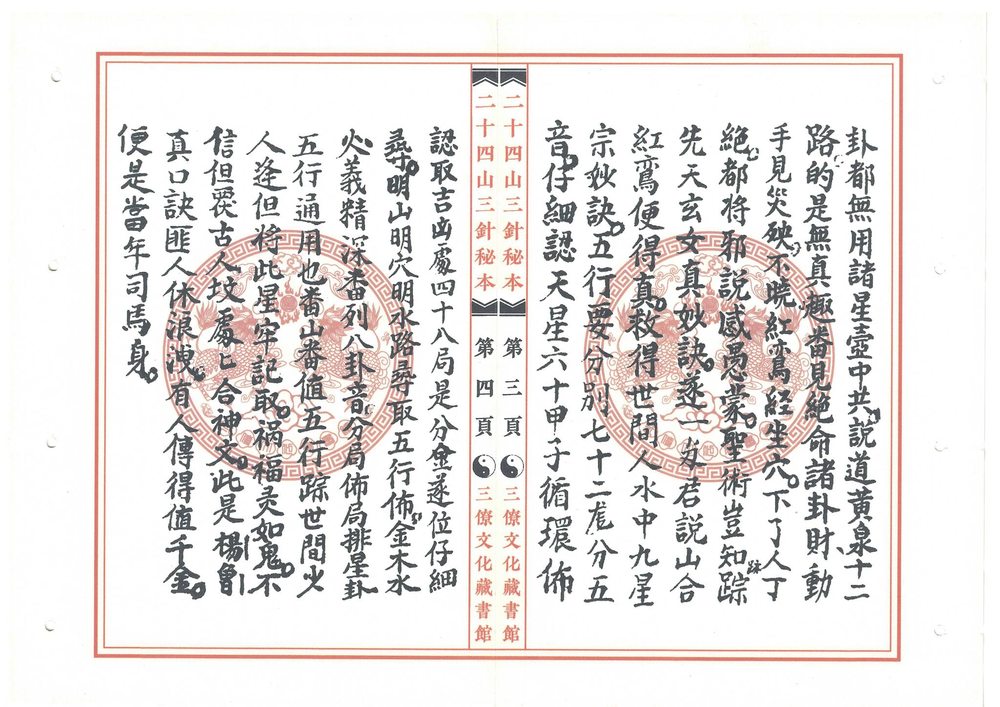 卦都無用諸星壺中共說道黃泉十二
路的是無真趣番見絕命諸卦財動
手見災殃不曉紅鸞経坐穴下了人丁
絕都将邪說感愚蒙聖術豈知踪
跡
先天玄女真妙訣逐一为君說山合
紅鸞便得真救得世間人水中九星
宗妙訣五行要分别七十二龙分五
音仔細認天星六十甲子循環佈
二十四山三針秘本
第三頁
三僚文化藏書館
二十四山三針秘本
第四頁
三僚文化藏書館
認取吉凶處四十八局是分金逐位仔細
尋明山明穴明水路尋取五行佈金木水
火義精深番列八卦音分局佈局排星卦
五行通用也番山番值五行踪世間少
人逢但将此星牢記取禍福灵如鬼不
信但覆古人坟處匕合神文此是楊曾
真口訣匪人休浪洩有人傳得值千金
便是當年司馬身